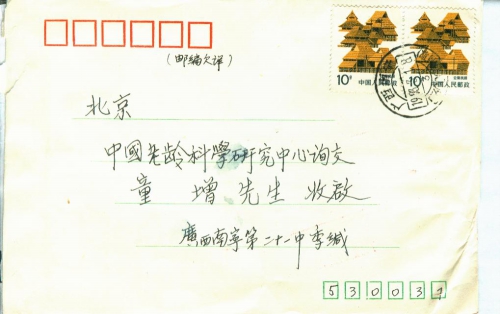 10分 中国人民邮政
10分 中国人民邮政
(邮编欠详)
北京
中國老龄科學研究中心询交
童 增 先生 收啟
廣西南寧第二十一中李缄
530031